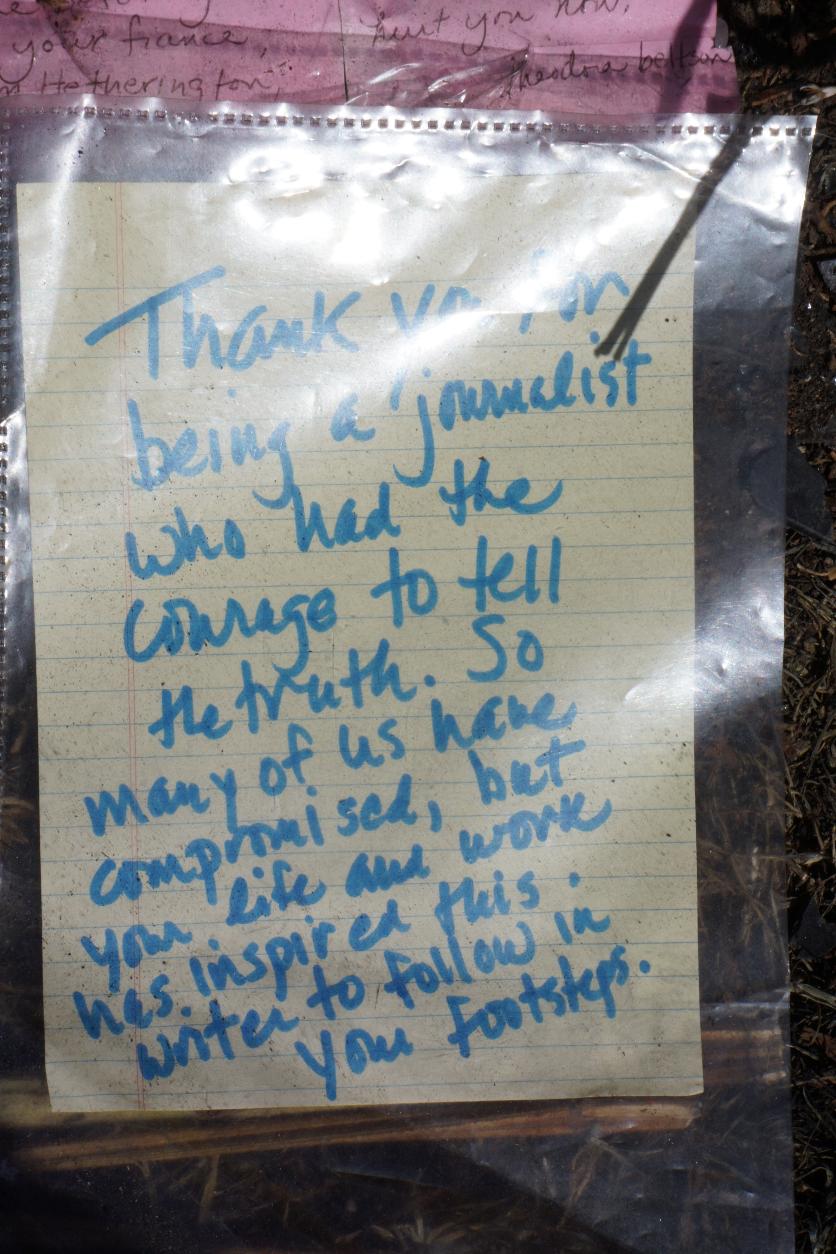 your fiance, hurt you now.
Hetherington, theodora
Thank you for
being a journalist
who had the
courage to tell
the truth. So
many of us have
compromised, but
your life and work
has inspired this
writer to follow in
your footsteps.